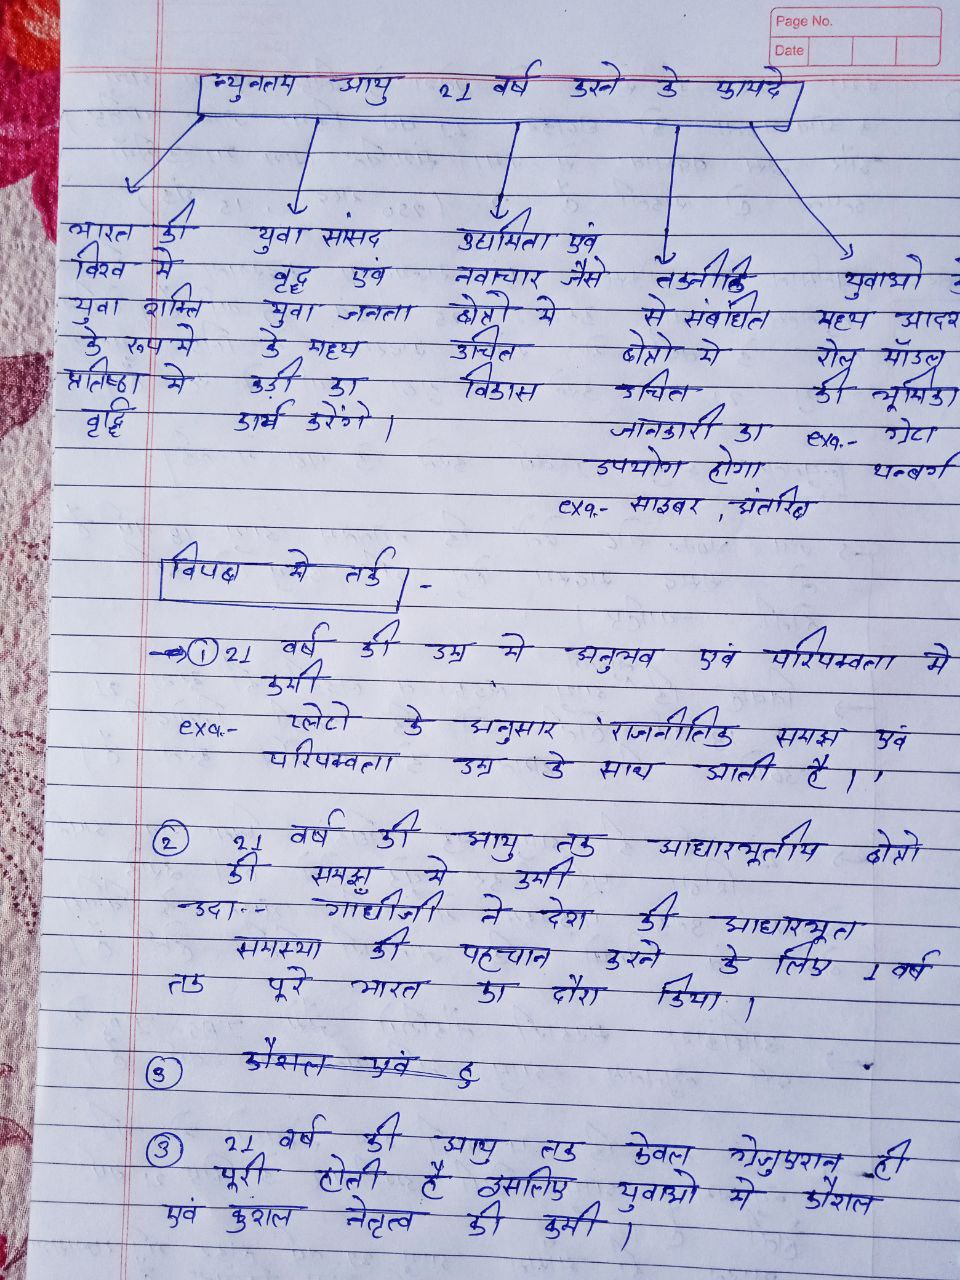 Page No.
Date
न्युनतम आयु 21 वर्ष करने के फायदे
भारत की
विश्व मे
युवा शक्ति
के रूप मे
प्रतिष्ठा मे
वृद्धि
युवा सांसद
वृद्ध एवं
युवा जनता
के मध्य
कड़ी का
कार्य करेंगे।
उद्यमिता एवं
नवाचार जैसे
क्षेत्रो मे
उचित
विकास
तकनीकि
से संबंधित
क्षेत्रो मे
उचित
जानकारी का
उपयोग होगा
exa.- साइबर, अंतरिक्ष
युवाओ के
मध्य आदर्श
रोल मॉडल
की भूमिका
exa.- ग्रेटा
थन्बर्ग
विपक्ष मे तर्क -
① 21 वर्ष की उम्र मे अनुभव एवं परिपक्वता मे
कमी
exa.- प्लेटो के अनुसार राजनीतिक समझ एवं
परिपक्वता उम्र के साथ आती है।
② 21 वर्ष की आयु तक आधारभूतीय क्षेत्रो
की समझ मे कमी
उदा.- गाँधीजी ने देश की आधारभूत
समस्या की पहचान करने के लिए 1 वर्ष
तक पूरे भारत का दौरा किया।
③ कौशल एवं कु
③ 21 वर्ष की आयु तक केवल ग्रेजुएशन ही
पूरी होती है इसलिए युवाओ मे कौशल
एवं कुशल नेतृत्व की कमी।